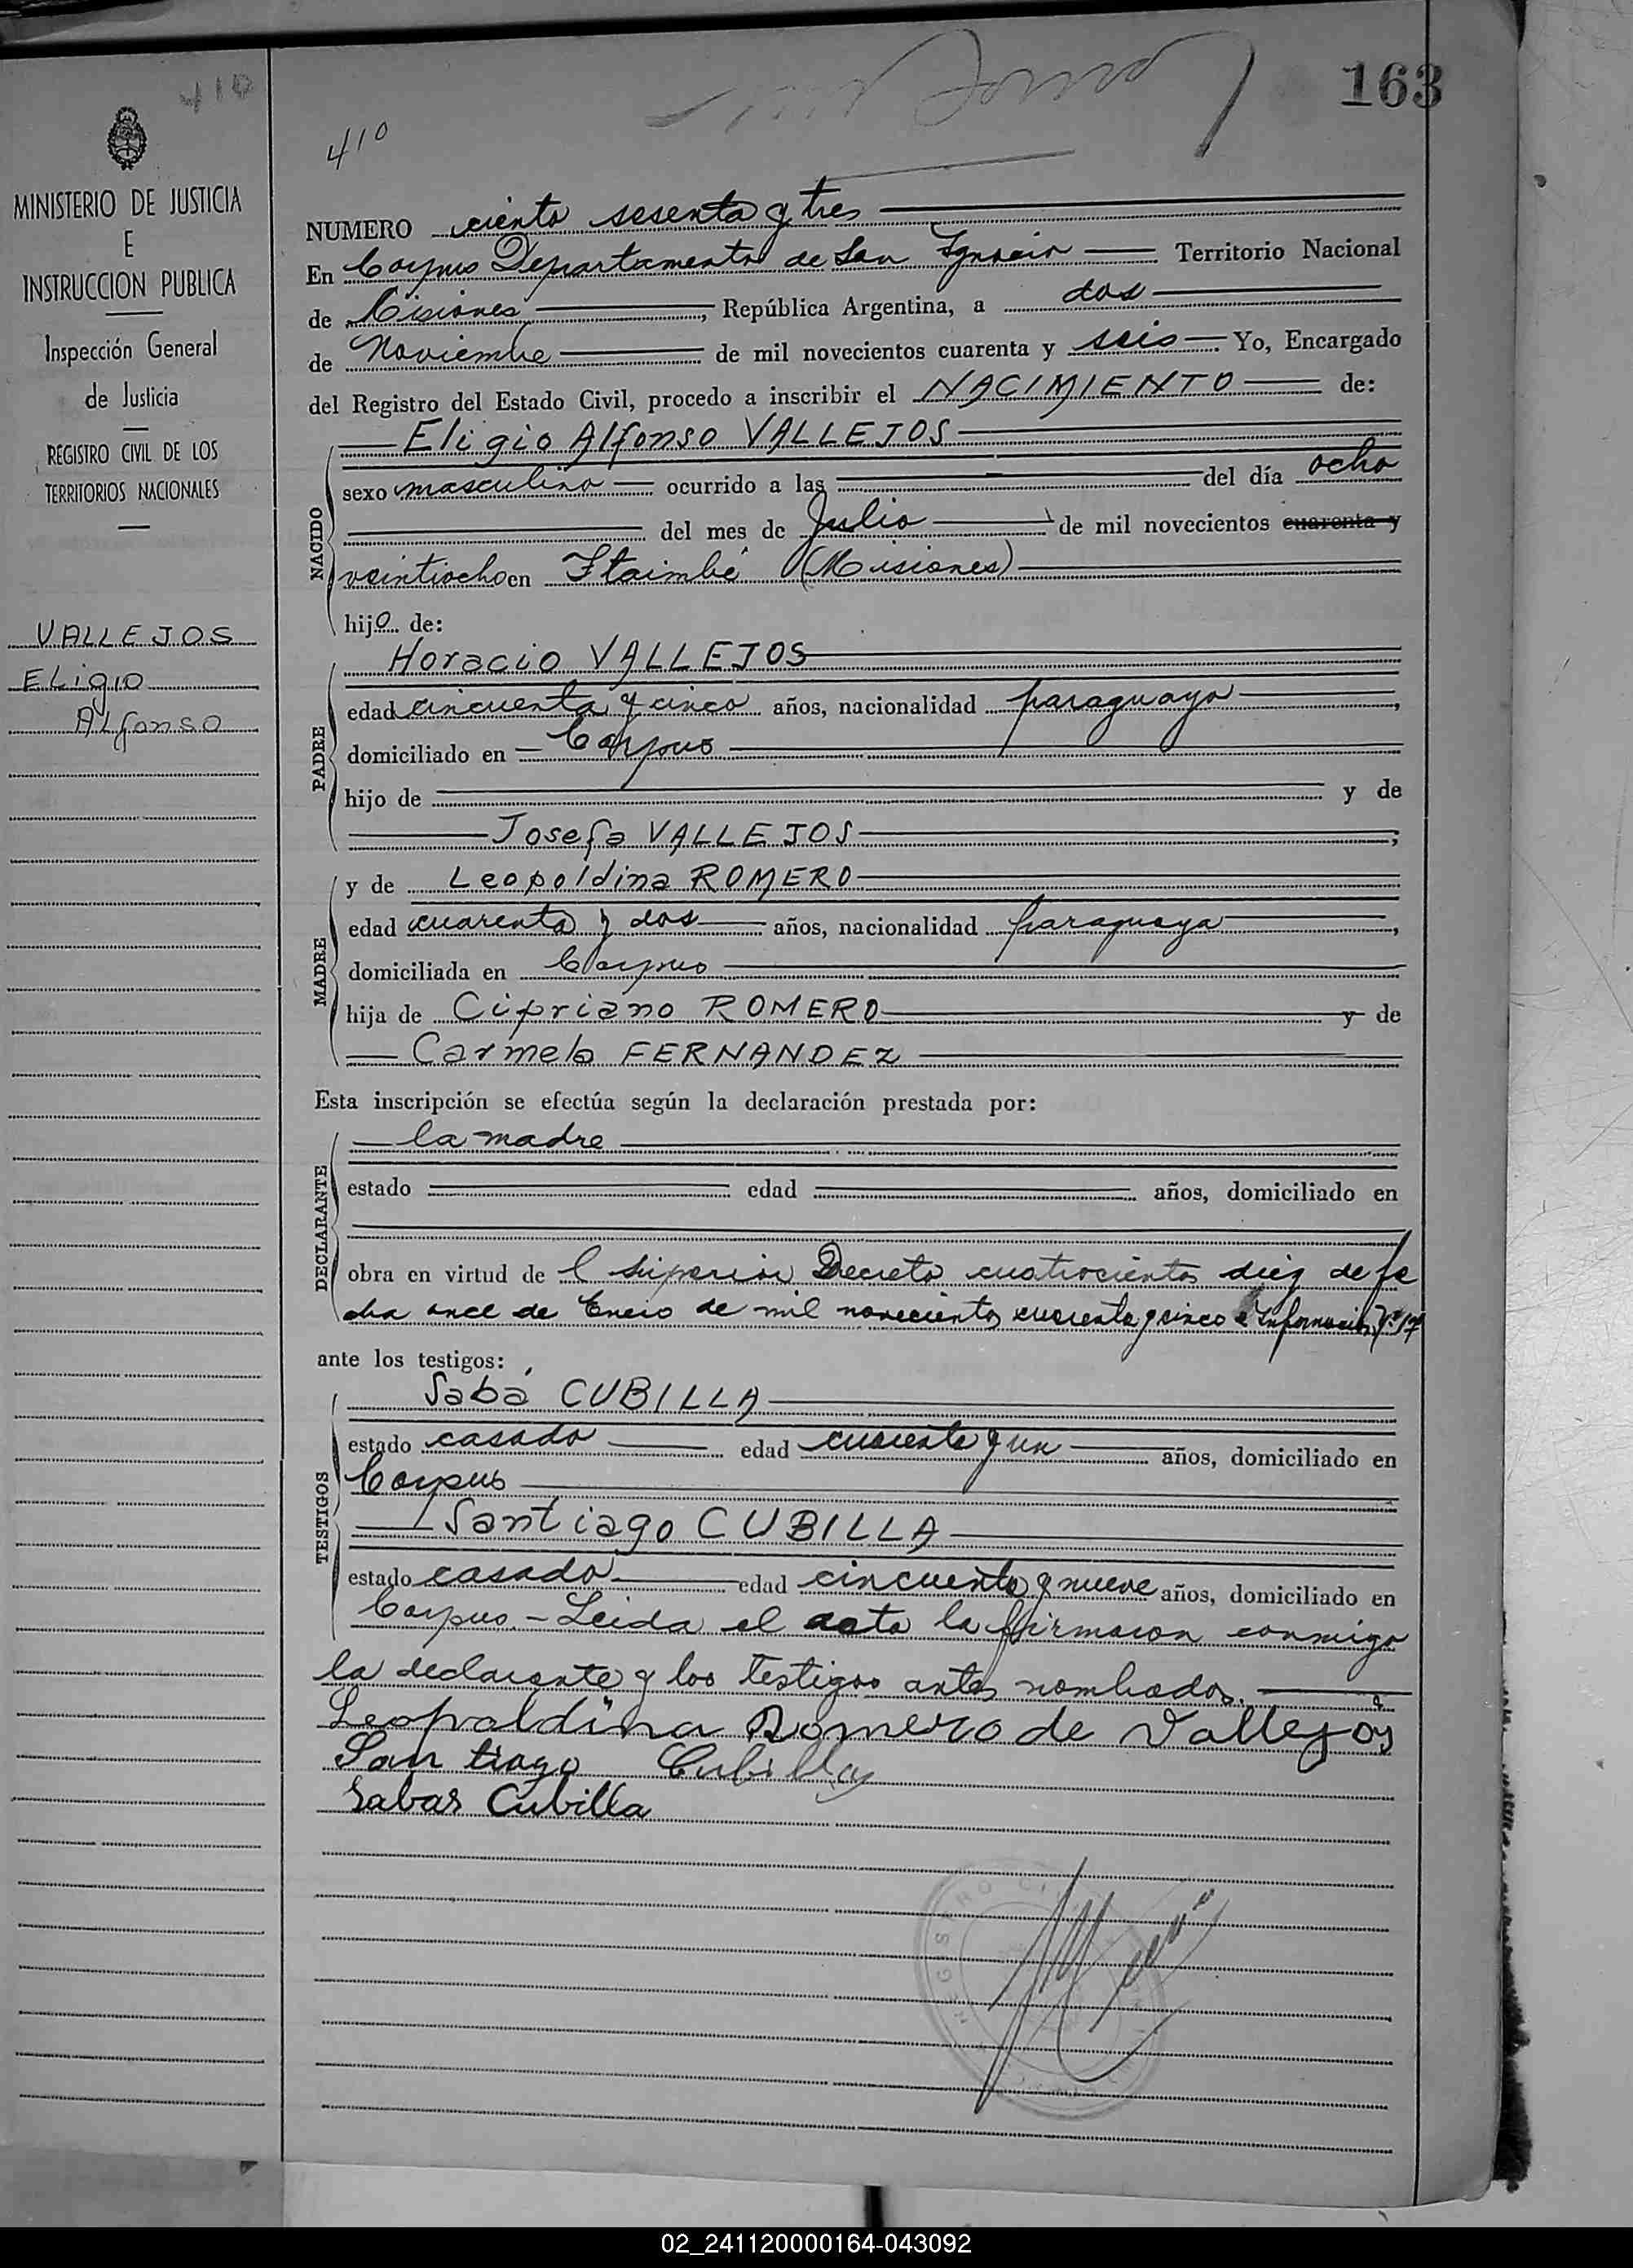 163
410
410
MINISTERIO DE JUSTICIA
E
INSTRUCCION PUBLICA
Inspección General
de Justicia
REGISTRO CIVIL DE LOS
TERRITORIOS NACIONALES
VALLEJOS
ELigio
ALfonso
NUMERO ciento sesenta y tres
En Corpus Departamento de San Ignacio Territorio Nacional
de Misiones, República Argentina, a dos
de Noviembre de mil novecientos cuarenta y seis. Yo, Encargado
del Registro del Estado Civil, procedo a inscribir el NACIMIENTO de:
NACIDO
Eligio Alfonso VALLEJOS
sexo masculino ocurrido a las del día ocho
del mes de Julio de mil novecientos cuarenta y
veintiocho en Itaimbé (Misiones)
hijo de:
PADRE
Horacio VALLEJOS
edad cincuenta y cinco años, nacionalidad paraguayo,
domiciliado en Corpus
hijo de y de
Josefa VALLEJOS;
MADRE
y de Leopoldina ROMERO
edad cuarenta y dos años, nacionalidad paraguaya,
domiciliada en Corpus
hija de Cipriano ROMERO y de
Carmela FERNANDEZ
Esta inscripción se efectúa según la declaración prestada por:
DECLARANTE
la madre
estado edad años, domiciliado en
obra en virtud de l Superior Decreto cuatrocientos diez de fe
cha once de Enero de mil novecientos cuarenta y cinco e Información
ante los testigos:
TESTIGOS
Sabá CUBILLA
estado casado edad cuarenta y un años, domiciliado en
Corpus
Santiago CUBILLA
estado casado edad cincuenta y nueve años, domiciliado en
Corpus.- Leida el acta la firmaron conmigo
la declarante y los testigos antes nombrados.
Leopoldina Romero de Vallejos
San tiago Cubilla
Sabas Cubilla
02_241120000164-043092